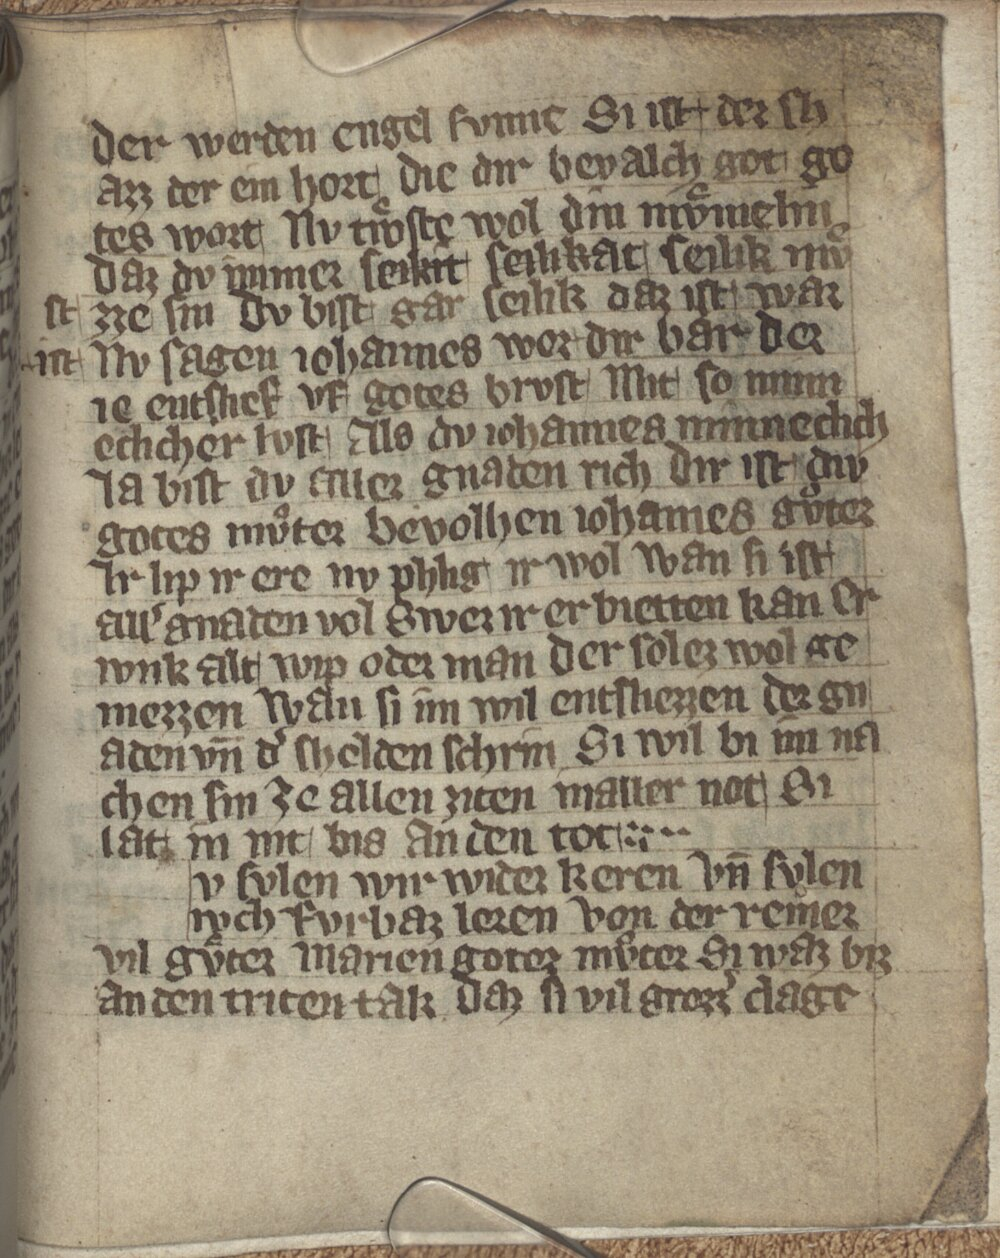 der werden engel svnne Si ist der sch
azz der ein hort die dir bevalch got go
tes wort Nv trͦste wol din mvͦmelin
daz dv immer seikit seilikat seilik mvͦ
st zze sin Dv bisst gar seilik daz ist war
int Nv sagen iohannes wer dir bar der
ie entslief vf gotes brvst Mit so minn
eclicher lvst Als dv iohannes minneclich
Ia bist dv aller gnaden rich Dir ist div
gotes mvͦter bevolhen iohannes gvͦter
Ir lip ir ere nv phlig ir wol wan si ist
aller gnaden vol Swer ir er bietten kan Er
wnk alt wip oder man der sol ez wol ge
niezzen Wan si im wil entsliezzen der gn
aden vn̄ dˀ selden schrin Si wil bi im na
chen sin Ze allen ziten in aller not Si
lat in nit bis an den tot
v svlen wir wider keren Vn̄ svlen
ivch fvrbaz leren von der reiner
vil gvͦter Marien gotez mvͦter Si waz biz
an den triten tak Daz si vil grozzˀ clage